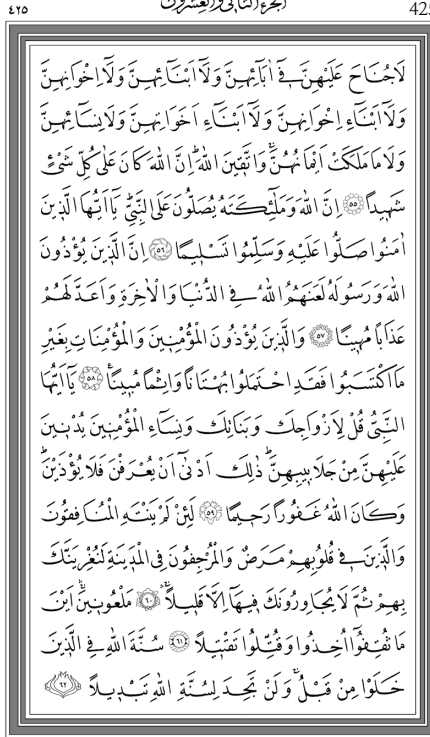 ٤٢٥ اَلْجُزْءُ الثَّانِي وَالْعِشْرُونَ 425
لَاجُنَاحَ عَلَيْهِنَّ فٖٓي اٰبَٓائِهِنَّ وَلَٓا اَبْنَٓائِهِنَّ وَلَٓا اِخْوَانِهِنَّ
وَلَٓا اَبْنَٓاءِ اِخْوَانِهِنَّ وَلَٓا اَبْنَٓاءِ اَخَوَاتِهِنَّ وَلَا نِسَٓائِهِنَّ
وَلَا مَا مَلَكَتْ اَيْمَانُهُنَّۚ وَاتَّقٖينَ اللّٰهَۜ اِنَّ اللّٰهَ كَانَ عَلٰى كُلِّ شَيْءٍ
شَهٖيداً ﴿٥٥﴾ اِنَّ اللّٰهَ وَمَلٰٓئِكَتَهُ يُصَلُّونَ عَلَى النَّبِيِّۜ يَٓا اَيُّهَا الَّذٖينَ
اٰمَنُوا صَلُّوا عَلَيْهِ وَسَلِّمُوا تَسْلٖيماً ﴿٥٦﴾ اِنَّ الَّذٖينَ يُؤْذُونَ
اللّٰهَ وَرَسُولَهُ لَعَنَهُمُ اللّٰهُ فِي الدُّنْيَا وَالْاٰخِرَةِ وَاَعَدَّ لَهُمْ
عَذَاباً مُهٖيناً ﴿٥٧﴾ وَالَّذٖينَ يُؤْذُونَ الْمُؤْمِنٖينَ وَالْمُؤْمِنَاتِ بِغَيْرِ
مَا اكْتَسَبُوا فَقَدِ احْتَمَلُوا بُهْتَاناً وَاِثْماً مُبٖيناًࣖ ﴿٥٨﴾ يَٓا اَيُّهَا
النَّبِيُّ قُلْ لِاَزْوَاجِكَ وَبَنَاتِكَ وَنِسَٓاءِ الْمُؤْمِنٖينَ يُدْنٖينَ
عَلَيْهِنَّ مِنْ جَلَابٖيبِهِنَّۜ ذٰلِكَ اَدْنٰٓى اَنْ يُعْرَفْنَ فَلَا يُؤْذَيْنَۜ
وَكَانَ اللّٰهُ غَفُوراً رَحٖيماً ﴿٥٩﴾ لَئِنْ لَمْ يَنْتَهِ الْمُنَافِقُونَ
وَالَّذٖينَ فٖي قُلُوبِهِمْ مَرَضٌ وَالْمُرْجِفُونَ فِي الْمَدٖينَةِ لَنُغْرِيَنَّكَ
بِهِمْ ثُمَّ لَا يُجَاوِرُونَكَ فٖيهَٓا اِلَّا قَلٖيلاًۚ ﴿٦٠﴾ مَلْعُونٖينَۚ اَيْنَ
مَا ثُقِفُٓوا اُخِذُوا وَقُتِّلُوا تَقْتٖيلاً ﴿٦١﴾ سُنَّةَ اللّٰهِ فِي الَّذٖينَ
خَلَوْا مِنْ قَبْلُۚ وَلَنْ تَجِدَ لِسُنَّةِ اللّٰهِ تَبْدٖيلاً ﴿٦٢﴾